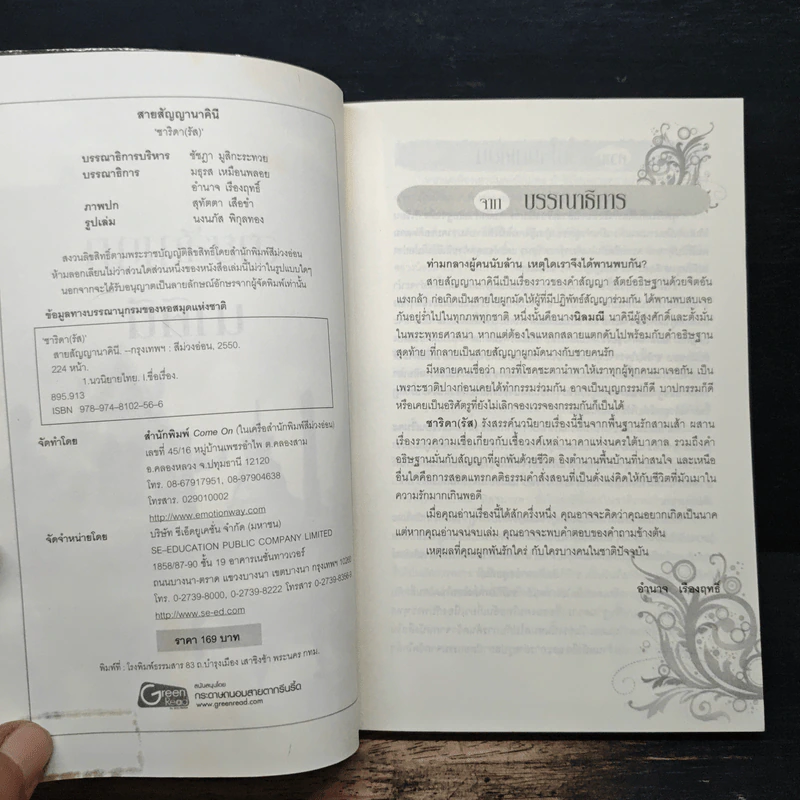 สายสัญญานาคินี
'ชาริดา(รัส)'
บรรณาธิการบริหาร ชัชฎา มูสิกะระทวย
บรรณาธิการ มธุรส เหมือนพลอย
อำนาจ เรืองฤทธิ์
ภาพปก สุทัตตา เสือขำ
รูปเล่ม นงนภัส พิกุลทอง
สงวนลิขสิทธิ์ตามพระราชบัญญัติลิขสิทธิ์โดยสำนักพิมพ์สีม่วงอ่อน
ห้ามลอกเลียนไม่ว่าส่วนใดส่วนหนึ่งของหนังสือเล่มนี้ไม่ว่าในรูปแบบใดๆ
นอกจากจะได้รับอนุญาตเป็นลายลักษณ์อักษรจากผู้จัดพิมพ์เท่านั้น
ข้อมูลทางบรรณานุกรมของหอสมุดแห่งชาติ
'ชาริดา(รัส)'
สายสัญญานาคินี. --กรุงเทพฯ : สีม่วงอ่อน, 2550.
224 หน้า.
1.นวนิยายไทย. I.ชื่อเรื่อง.
895.913
ISBN 978-974-8102-56-6
จัดทำโดย สำนักพิมพ์ Come On (ในเครือสำนักพิมพ์สีม่วงอ่อน)
เลขที่ 45/16 หมู่บ้านเพชรอำไพ ต.คลองสาม
อ.คลองหลวง จ.ปทุมธานี 12120
โทร. 08-67917951, 08-97904638
โทรสาร. 029010002
http://www.emotionway.com
จัดจำหน่ายโดย บริษัท ซีเอ็ดยูเคชั่น จำกัด (มหาชน)
SE-EDUCATION PUBLIC COMPANY LIMITED
1858/87-90 ชั้น 19 อาคารเนชั่นทาวเวอร์
ถนนบางนา-ตราด แขวงบางนา เขตบางนา กรุงเทพฯ 10260
โทร. 0-2739-8000, 0-2739-8222 โทรสาร 0-2739-8356-9
http://www.se-ed.com
ราคา 169 บาท
พิมพ์ที่ : โรงพิมพ์ธรรมสาร 83 ถ.บำรุงเมือง เสาชิงช้า พระนคร กทม.
Green Read
สนับสนุนโดย
กระดาษถนอมสายตากรีนรี้ด
www.greenread.com
จาก บรรณาธิการ
ท่ามกลางผู้คนนับล้าน เหตุใดเราจึงได้พานพบกัน?
สายสัญญานาคินีเป็นเรื่องราวของคำสัญญา สัตย์อธิษฐานด้วยจิตอัน
แรงกล้า ก่อเกิดเป็นสายใยผูกมัดให้ผู้ที่มีปฏิพัทธ์สัญญาร่วมกัน ได้พานพบสบเจอ
กันอยู่ร่ำไปในทุกภพทุกชาติ หนึ่งนั้นคือนางนิลมณี นาคินีผู้สูงศักดิ์และตั้งมั่น
ในพระพุทธศาสนา หากแต่ต้องใจแหลกสลายแตกดับไปพร้อมกับคำอธิษฐาน
สุดท้าย ที่กลายเป็นสายสัญญาผูกมัดนางกับชายคนรัก
มีหลายคนเชื่อว่า การที่โชคชะตานำพาให้เราทุกผู้ทุกคนมาเจอกัน เป็น
เพราะชาติปางก่อนเคยได้ทำกรรมร่วมกัน อาจเป็นบุญกรรมก็ดี บาปกรรมก็ดี
หรือเคยเป็นอริศัตรูที่ยังไม่เลิกจองเวรจองกรรมกันก็เป็นได้
ชาริดา(รัส) รังสรรค์นวนิยายเรื่องนี้ขึ้นจากพื้นฐานรักสามเส้า ผสาน
เรื่องราวความเชื่อเกี่ยวกับเชื้อวงศ์เหล่านาคาแห่งนครใต้บาดาล รวมถึงคำ
อธิษฐานมั่นกับสัญญาที่ผูกพันด้วยชีวิต อิงตำนานพื้นบ้านที่น่าสนใจ และเหนือ
อื่นใดคือการสอดแทรกคติธรรมคำสั่งสอนที่เป็นดั่งแง่คิดให้กับชีวิตที่มัวเมาใน
ความรักมากเกินพอดี
เมื่อคุณอ่านเรื่องนี้ได้สักครึ่งหนึ่ง คุณอาจจะคิดว่าคุณอยากเกิดเป็นนาค
แต่หากคุณอ่านจนจบเล่ม คุณอาจจะพบคำตอบของคำถามข้างต้น
เหตุผลที่คุณผูกพันรักใคร่ กับใครบางคนในชาติปัจจุบัน
อำนาจ เรืองฤทธิ์